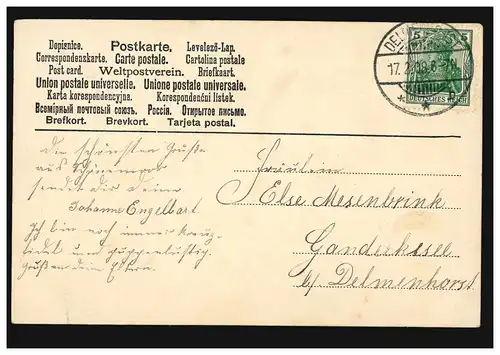 Dopisnice. Postkarte. Levelező-Lap.
Correspondenzkarte. Carte postale. Cartolina postale
Post card. Weltpostverein. Briefkaart.
Union postale universelle. Unione postale universale.
Karta korespondencyjna. Korespondenční lístek.
Всемірный почтовый союзъ. Россія. Открытое письмо.
Brefkort. Brevkort. Tarjeta postal.
5 5
DEUTSCHES REICH
17. 2.09. 6-7N.
Die schönsten Grüße
aus
sendet dir Deine
Johanne Engelbart.
Ich bin noch immer kreuz-
fidel und
Grüßen dem Eltern.
Fräulein
Else Mesenbrink
Ganderkesee
b/ Delmenhorst